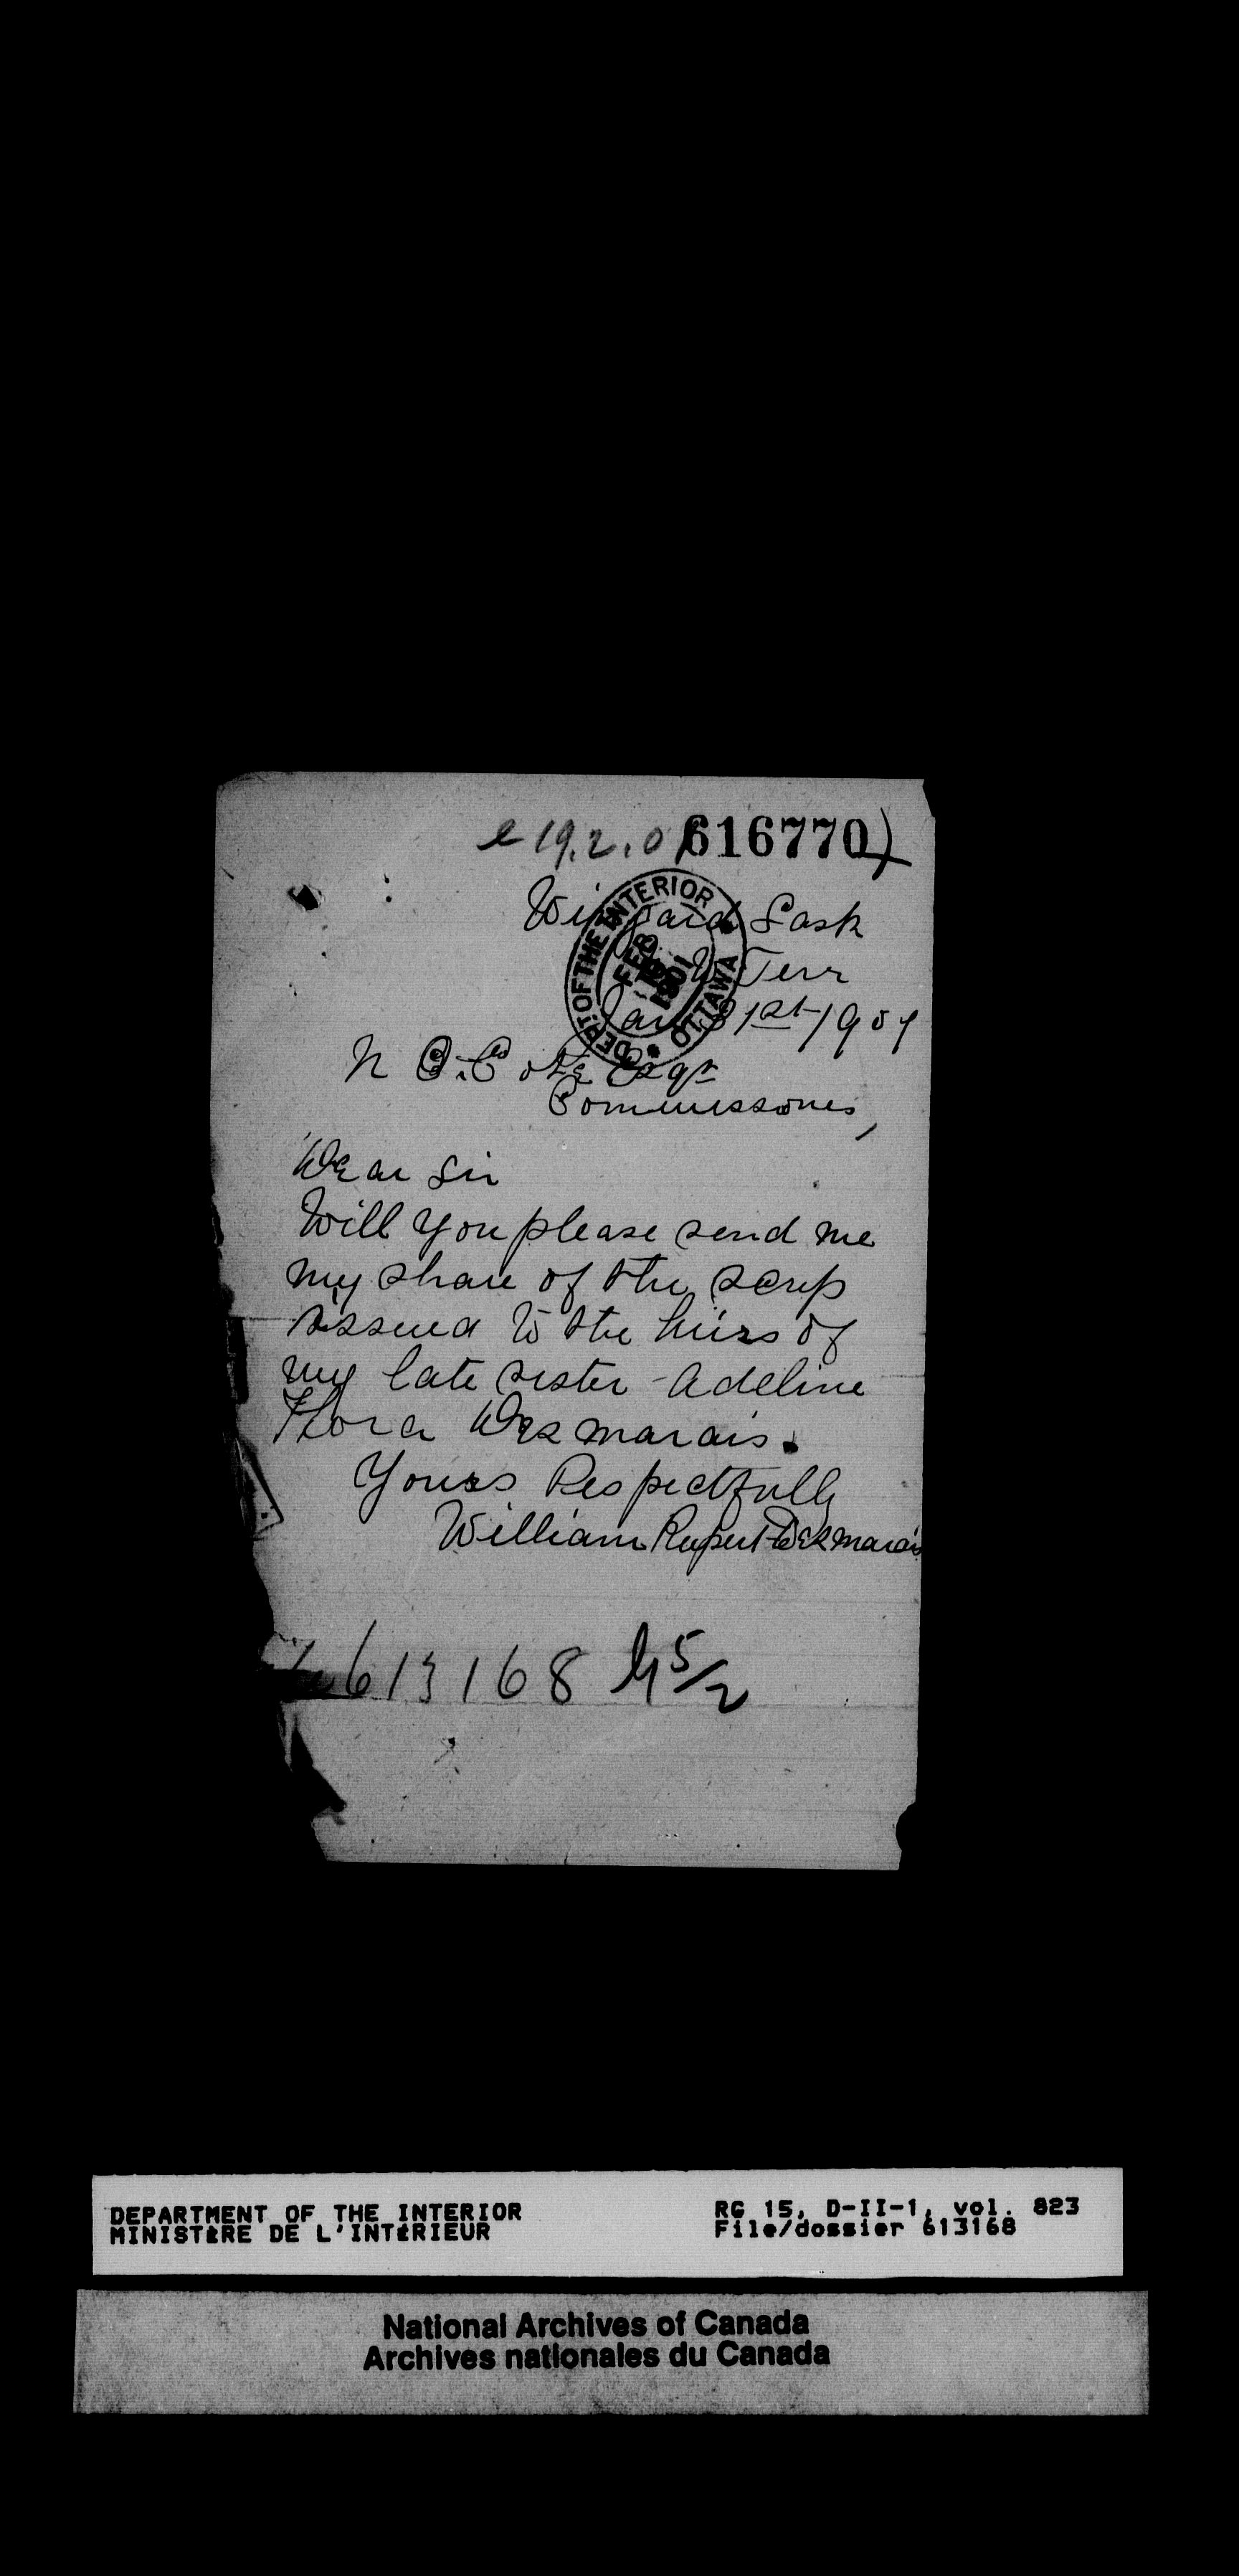 e 19.2.01 616770
DEPT. OF THE INTERIOR
FEB
1901
OTTAWA
Wingard Sask
W Terr
Jan 31st 1901
N O. Coté Esqr
Commissioner,
Dear Sir
Will you please send me
my share of the scrip
issued to the heirs of
my late sister Adeline
Flora Desmarais.
Yours Respectfully
William Rupert Desmarais
613168 5/2
DEPARTMENT OF THE INTERIOR
MINISTÈRE DE L'INTÉRIEUR
RG 15, D-II-1, vol. 823
File/dossier 613168
National Archives of Canada
Archives nationales du Canada